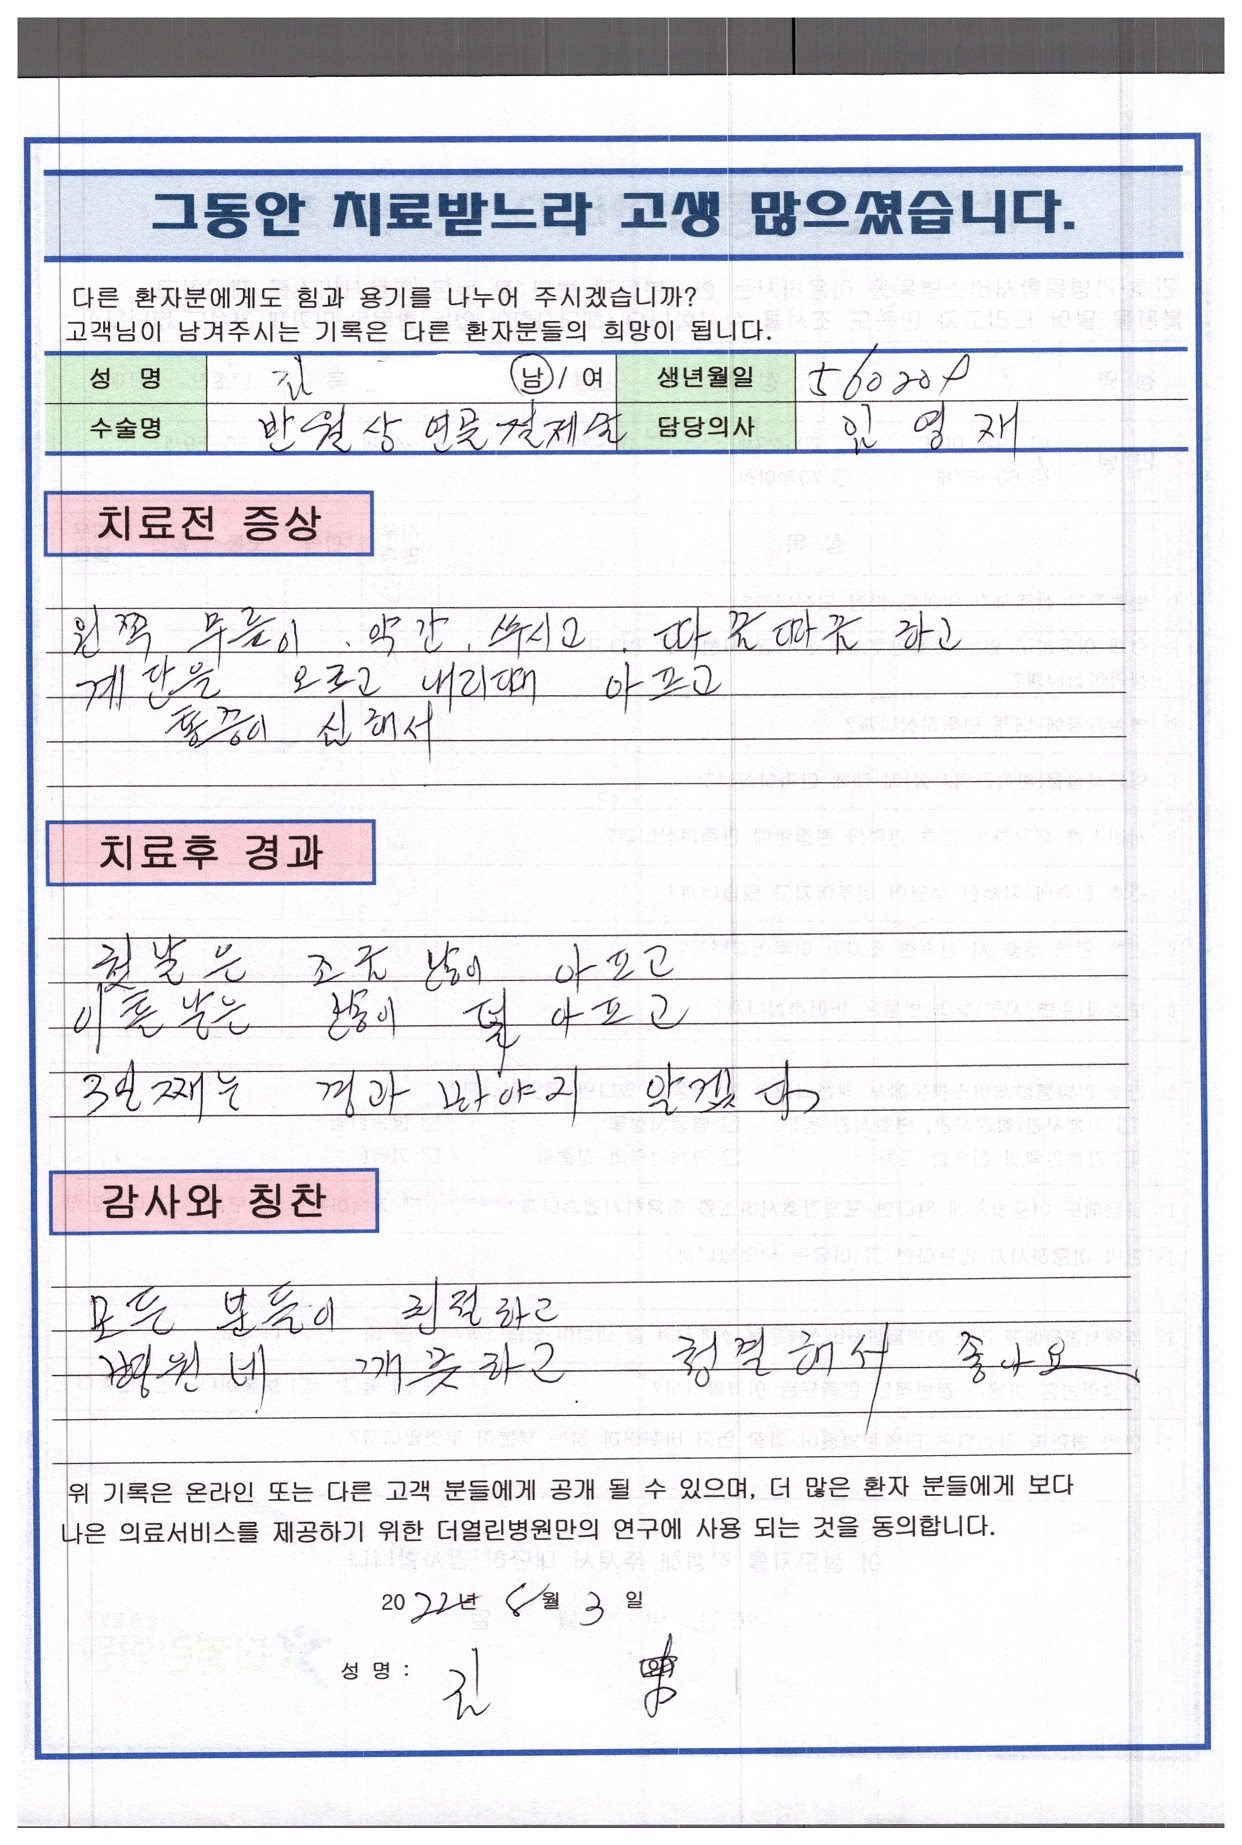 그동안 치료받느라 고생 많으셨습니다.
다른 환자분에게도 힘과 용기를 나누어 주시겠습니까?
고객님이 남겨주시는 기록은 다른 환자분들의 희망이 됩니다.
성 명 김 남 / 여 생년월일
수술명 반월상 연골 절제술 담당의사 임영재
치료전 증상
왼쪽 무릎이 약간 쑤시고 따끔따끔 하고
계단을 오르고 내리때 아프고
통증이 심해서
치료후 경과
첫날은 조금 많이 아프고
이튿날은 많이 덜 아프고
3일째는 경과 봐야지 알겠다
감사와 칭찬
모든 분들이 친절하고
병원네 깨끗하고 청결해서 좋아요
위 기록은 온라인 또는 다른 고객 분들에게 공개 될 수 있으며, 더 많은 환자 분들에게 보다
나은 의료서비스를 제공하기 위한 더열린병원만의 연구에 사용 되는 것을 동의합니다.
2022년 8월 3일
성 명 : 김